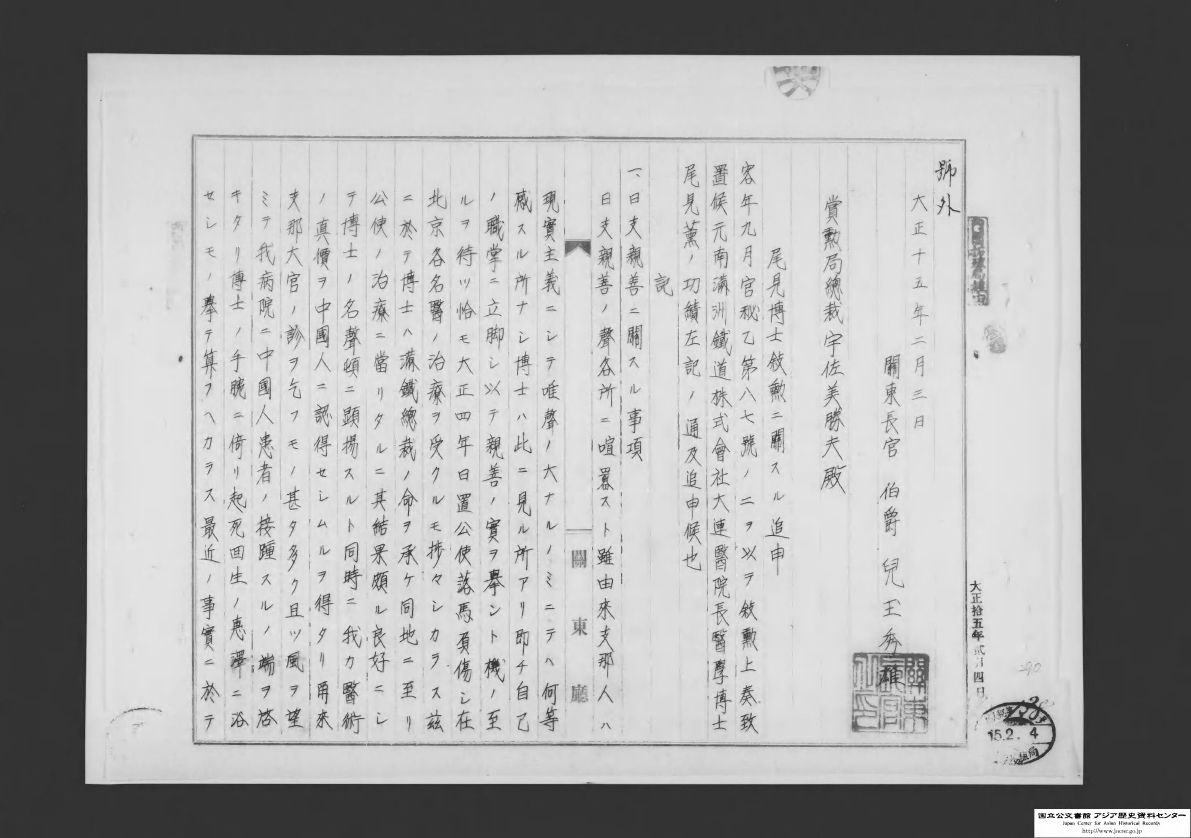 號外
大正十五年二月三日
關東長官 伯爵 兒玉秀雄
賞勲局總裁宇佐美勝夫殿
尾見博士敘勲ニ關スル追申
客年九月官秘乙第八七號ノ二ヲ以テ敘勲上奏致
置候元南滿洲鐵道株式會社大連醫院長醫學博士
尾見薫ノ功績左記ノ通及追申候也
記
一、日支親善ニ關スル事項
日支親善ノ聲各所ニ喧囂スト雖由來支那人ハ
現實主義ニシテ唯聲ノ大ナルノミニテハ何等
感スル所ナシ博士ハ此ニ見ル所アリ即チ自己
ノ職掌ニ立脚シ以テ親善ノ實ヲ擧ント機ノ至
ルヲ待ツ恰モ大正四年日置公使落馬負傷シ在
北京各名醫ノ治療ヲ受クルモ捗々シカラス茲
ニ於テ博士ハ滿鐵總裁ノ命ヲ承ケ同地ニ至リ
公使ノ治療ニ當リタルニ其結果頗ル良好ニシ
テ博士ノ名聲頓ニ顕揚スルト同時ニ我カ醫術
ノ真價ヲ中國人ニ認得セシムルヲ得タリ爾来
支那大官ノ診ヲ乞フモノ甚タ多ク且ツ風ヲ望
ミテ我病院ニ中國人患者ノ接踵スルノ端ヲ啓
キタリ博士ノ手腕ニ倚リ起死回生ノ恵澤ニ浴
セシモノ擧テ算フヘカラス最近ノ事實ニ於テ
關東廳
大正拾五年貳月四日
15.2.4
国立公文書館 アジア歴史資料センター
Japan Center for Asian Historical Records
http://www.jacar.go.jp